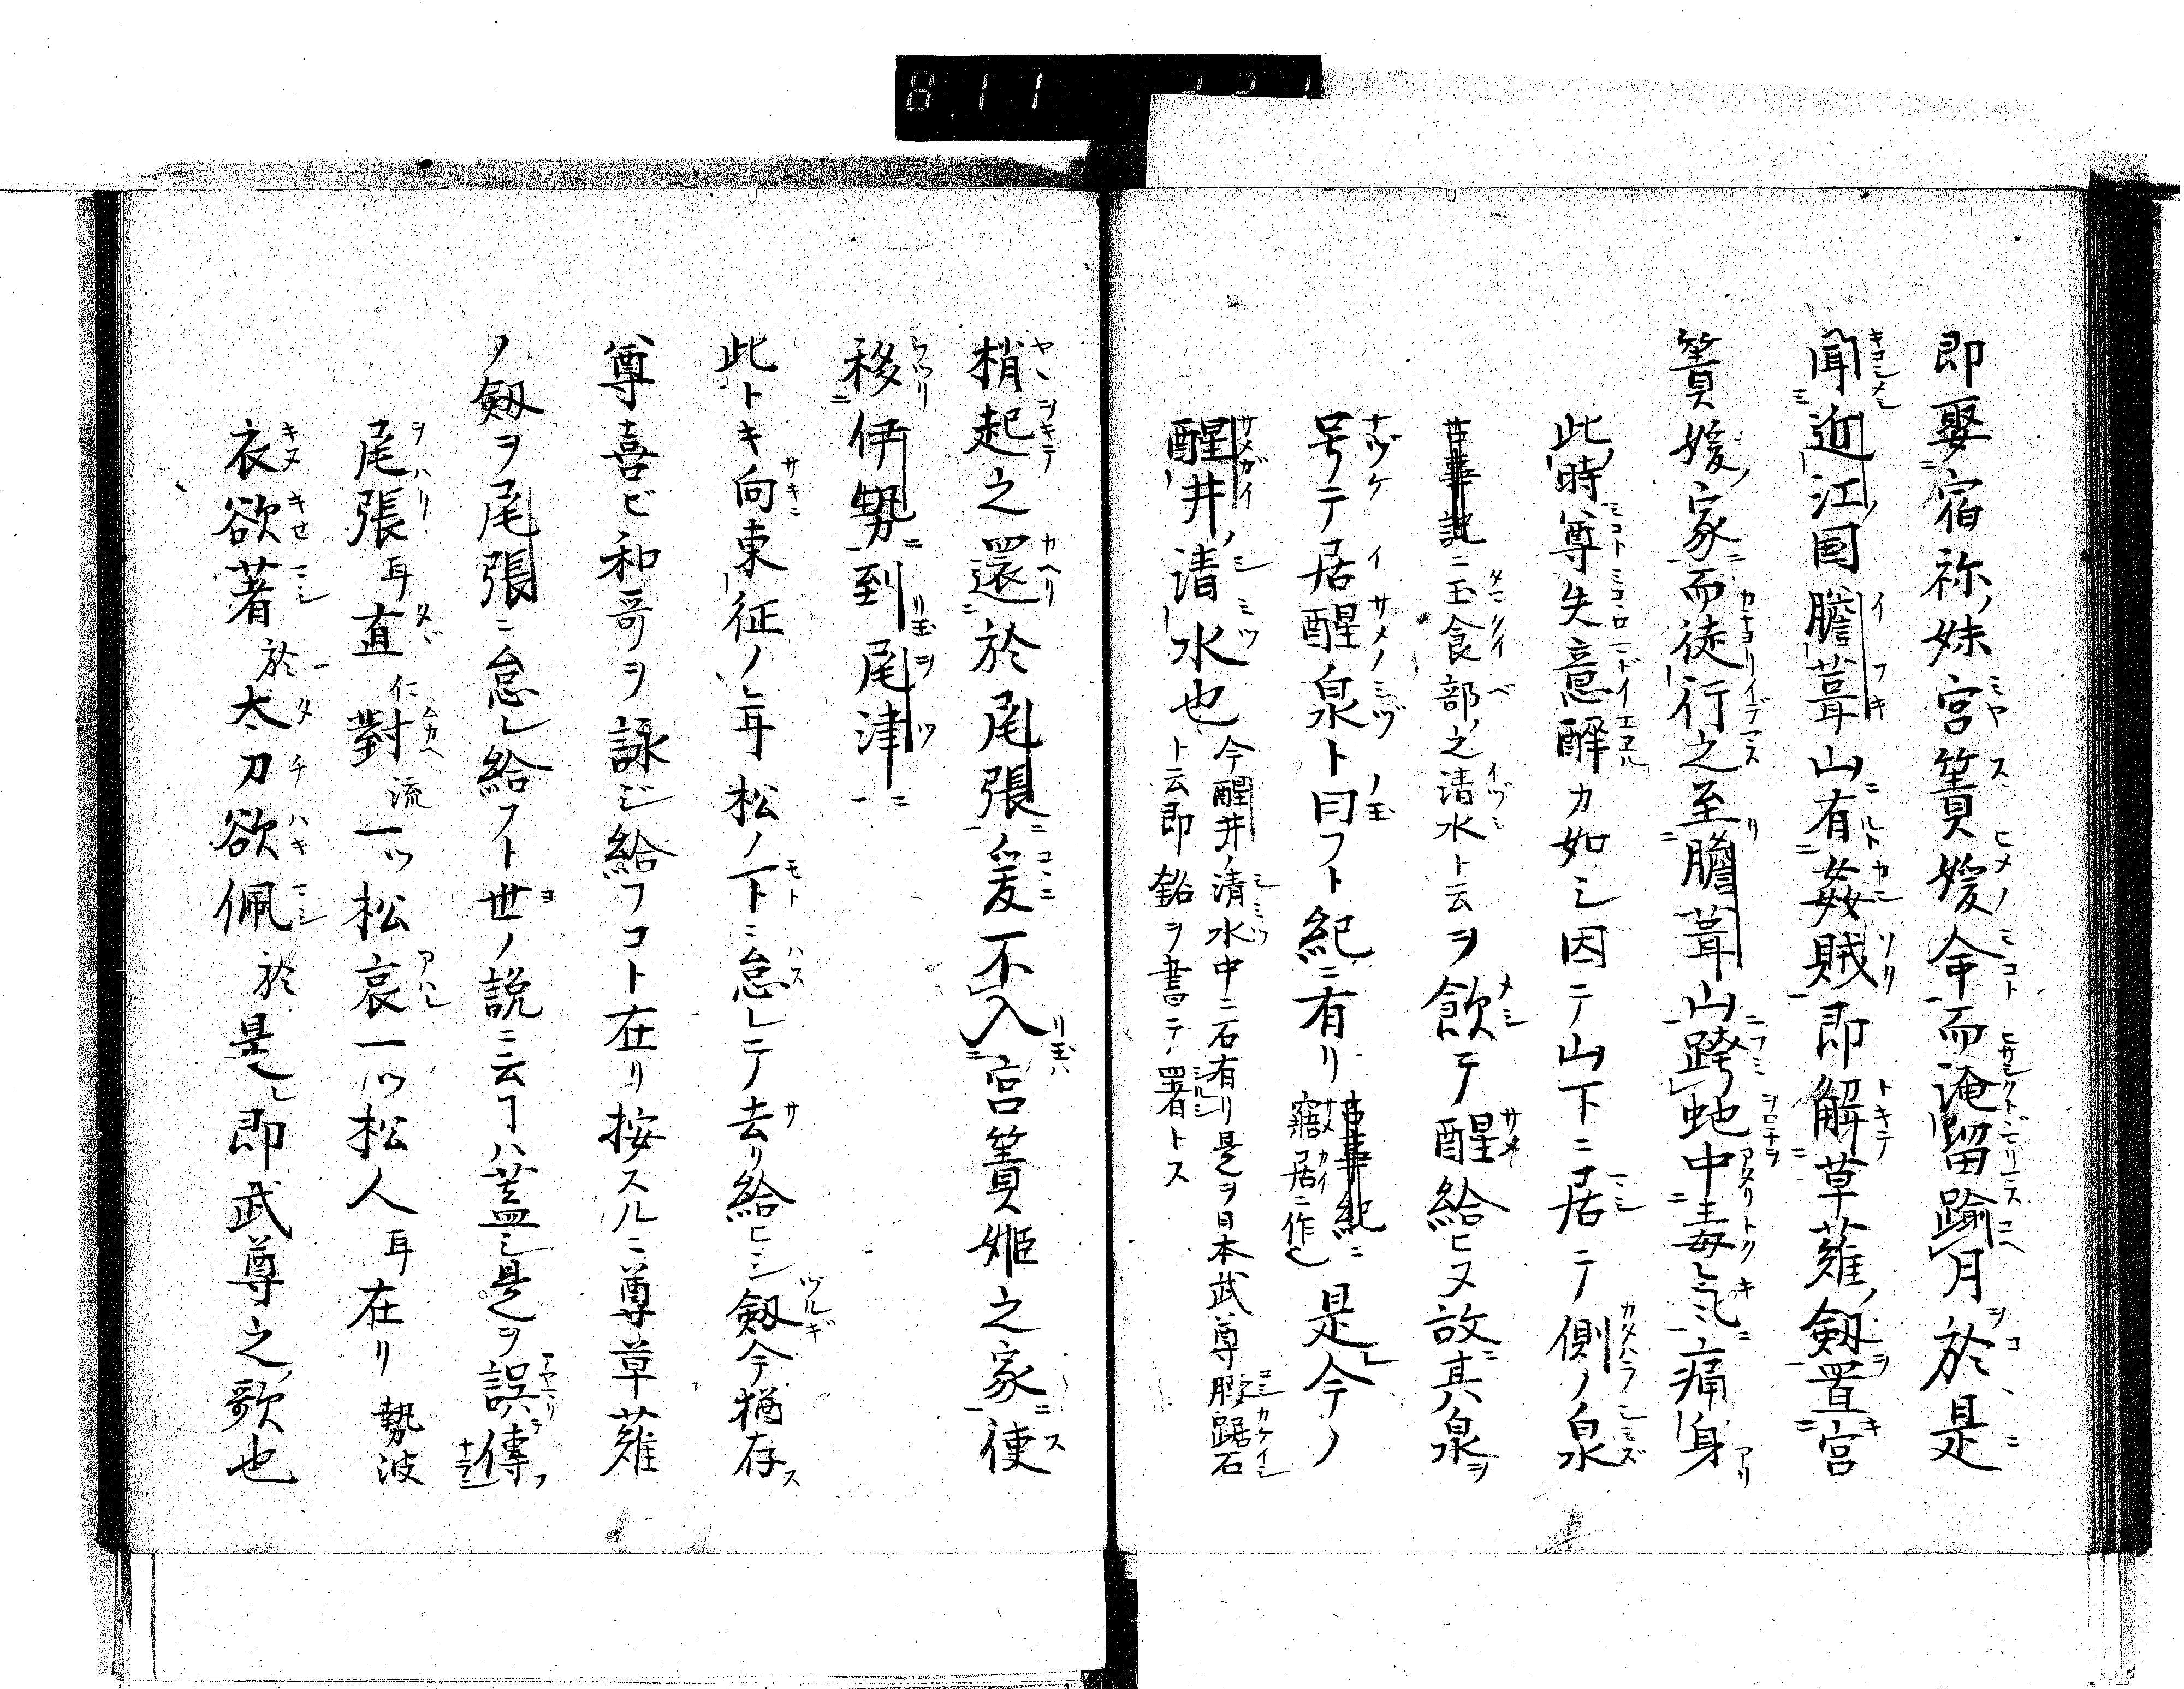 即娶宿祢ノ妹宮簀媛命而淹留踰月於是
聞近江国膽葺山有姦賊即解草薙ノ剱置宮
簀媛ノ家而徒行之至膽葺山跨虵中毒氣痛身
此時尊失意醉カ如シ因テ山下ニ居テ側ノ泉
古事記ニ玉食部ノ之清水ト云ヲ飲テ醒給ヒヌ故其泉ヲ
号テ居醒泉ト曰フト紀ニ有リ古事紀ニ寤居ニ作ル是今ノ
醒井ノ清水也今醒井ノ清水中ニ石有リ是ヲ日本武尊腰踞石
ト云即銘ヲ書テ署トス
梢起之還於尾張爰不入宮簀姫之家便
移伊勢到尾津
此トキ向東征ノ年松ノ下ニ怠レテ去リ給ヒシ剱今猶存ス
尊喜ビ和哥ヲ詠ジ給フコト在リ按スルニ尊草薙
ノ剱ヲ尾張ニ怠レ給フト世ノ説ニ云フハ蓋シ是ヲ誤傳フナラン
尾張耳直仁對流一ツ松哀一ツ松人耳在リ勢波
衣欲著於太刀欲佩於是レ即武尊之歌也
811